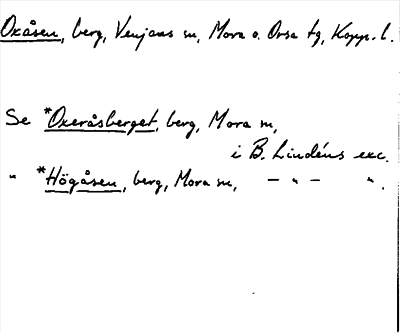 Oxåsen, berg, Venjans sn, Mora o. Orsa tg, Kopp. l.
Se *Oxeråsberget, berg, Mora sn,
i B. Lindéns exc.
" *Högåsen, berg, Mora sn, — " — " .